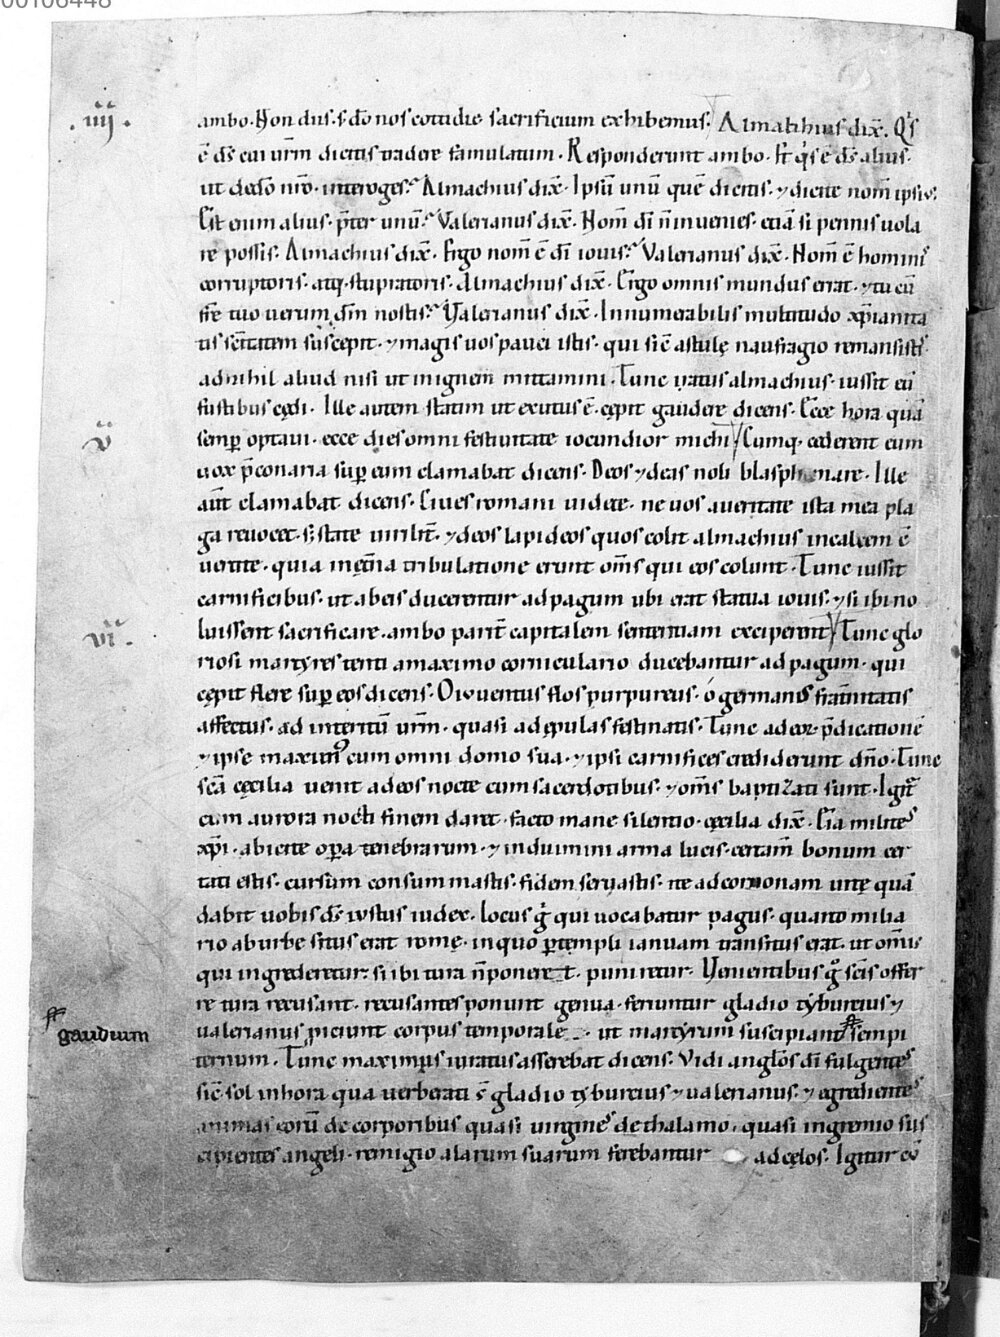 00106448
.iiij.
ambo. Non diis. s; dō nos cottidie sacrificium exhibemus. Almathius dix̄. Qͥs
ē dš cui ur̄m dicitis tradere famulatum. Responderunt ambo. Et qͥs ē dš alius.
ut de dō nr̄o. interroges? Almachius dix̄. Ipsū unū quē dicitis. ⁊ dicite nom̄ ipsius.
Est enim alius. p̄ter unū? Valerianus dix̄. Nom̄ dī n̄ inuenies. etiā si pennis uola
re possis. Almachius dix̄. Ergo nom̄ ē dī iouis? Valerianus dix̄. Nom̄ ē hominis
corruptoris. atq; stupratoris. Almachius dix̄. Ergo omnis mundus errat. ⁊ tu cū
fr̄e tuo uerum dm̄ nostis? Valerianus dix̄. Innumerabilis multitudo xp̄ianita
tis sc̄itatem suscepit. ⁊ magis uos pauci estis. qui sic̄ astulę naufragio remansistis
ad nihil aliud nisi ut in ignem mittamini. Tunc iratus almachius. iussit eū
fustibus cędi. Ille autem statim ut exutus ē. cępit gaudere dicens. Ecce hora quā
v̈
semp̲ optaui. ecce dies omni festiuitate iocundior michi Cumq; cederent eum
uox p̄conaria sup̲ eum clamabat dicens. Deos ⁊ deas noli blasphemare. Ille
aūt clamabat dicens. Ciues romani uidete. ne uos a ueritate ista mea pla
ga reuocet. s; state uirilit̄. ⁊ deos lapideos quos colit almachius in calcem c̄
uertite. quia in ęt̄na tribulatione erunt om̄s qui eos colunt. Tunc iussit
carnificibus. ut ab eis ducerentur ad pagum ubi erat statua iouis. ⁊ si ibi no
vi̇̈.
luissent sacrificare. ambo parit̄ capitalem sententiam exciperent Tunc glo
riosi martyres tenti a maximo corniculario ducebantur ad pagum. qui
cępit flere sup̲ eos dicens. O iuuentus flos purpureus. ó germanus frat̄nitatis
affectus. ad interitū ur̄m. quasi ad ępulas festinatis. Tunc ad eoꝝ p̄dicationē
⁊ ipse maximꝰ cum omni domo sua. ⁊ ipsi carnifices crediderunt dn̄o. Tunc
sc̄a cęcilia uenit ad eos nocte cum sacerdotibus. ⁊ om̄s baptizati sunt. Igit᷑
cum aurora nocti finem daret. facto mane silentio. cęcilia dix̄. Eia milites
xp̄i. abicite op̲a tenebrarum. ⁊ induimini arma lucis. certam̄ bonum cer
tati estis. cursum consummastis. fidem seruastis. ite ad coronam uitę quā
dabit uobis dš iustus iudex. Locus gͥ qui uocabatur pagus. quarto milia
rio ab urbe situs erat romę. in quo p̲ templi ianuam transitus erat. ut omis
qui ingrederetur. si ibi tura n̄ poneret. puniretur. Venientibus gͦ sc̄is offer
re tura recusant. recusantes ponunt genua. feriuntur gladio tyburcius ⁊
gaudium
ualerianus piciunt corpus temporale. ut martyrum suscipiant sempi
ternum. Tunc maximus iuratus asserebat dicens. Vidi anglos dī fulgentes
sic̄ sol in hora qua uerberati s̄ gladio tyburcius ⁊ ualerianus. ⁊ egredientes
animas eorū de corporibus quasi uirgines de thalamo. quasi in gremio sus
cipientes angeli. remigio alarum suarum ferebantur ad cęlos. Igitur eō